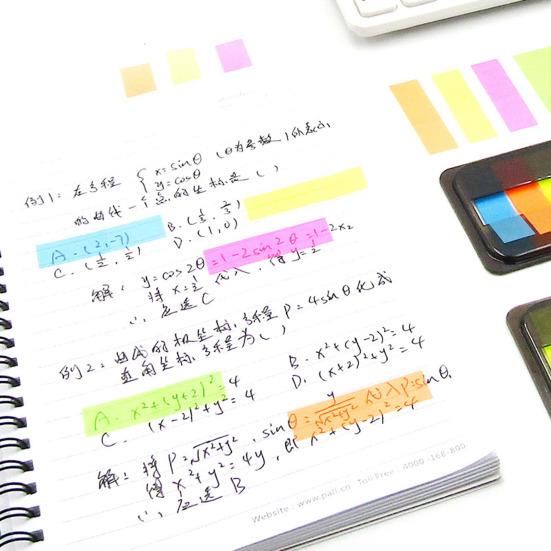 例1：在方程 { x=sinθ (θ为参数)所表示
y=cosθ
的曲线一点的坐标是( )
A.(2,-7) B.(1/3, 2/3)
C.(1/2, 1/2) D.(1,0)
解：y=cos2θ=1-2sin2θ=1-2x2
将x=1/2代入,得y=1/2
∴应选C
例2：曲线的极坐标方程ρ=4sinθ化成
直角坐标方程为( )
A. x²+(y+2)²=4 B. x²+(y-2)²=4
C. (x-2)²+y²=4 D. (x+2)²+y²=4
解：将ρ=√x²+y², sinθ=y/√x²+y² 代入ρ=sinθ,
得x²+y²=4y,即x²+(y-2)²=4
∴应选B
Website: www.pali.cn Toll Free: 4000-168-800